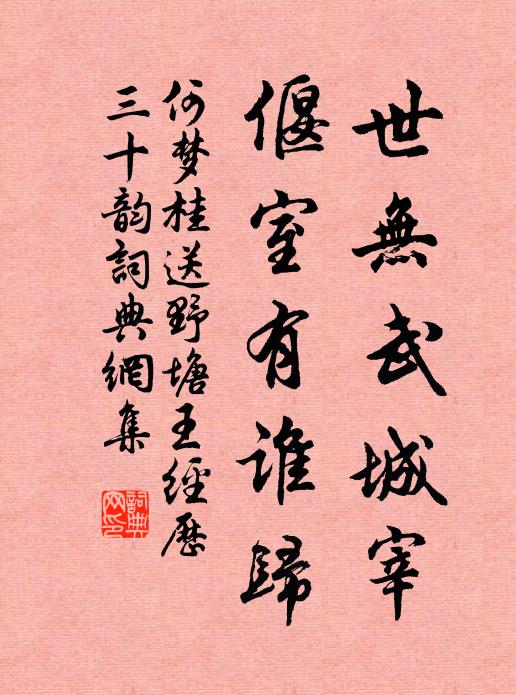 世無武城宰
偃室有誰歸
何梦桂送野塘王經歷
三十韵詞典網集
詞典
网印